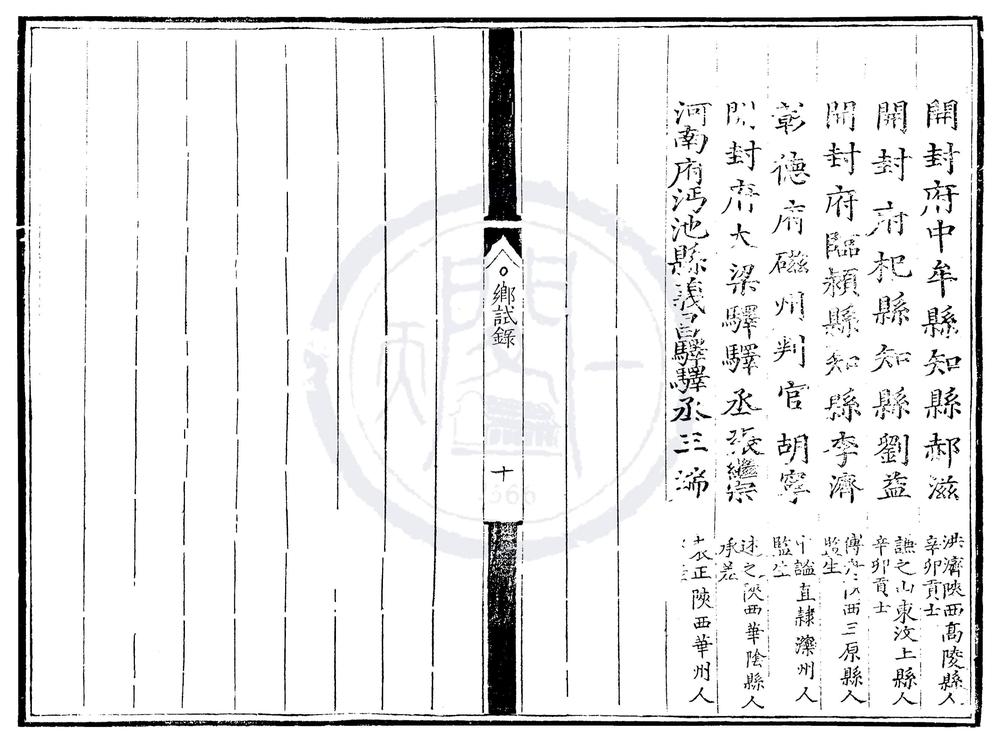 開封府中牟縣知縣郝滋
洪濟陝西高陵縣人
辛卯貢士
開封府杞縣知縣劉益
謙之山東汶上縣人
辛卯貢士
開封府臨潁縣知縣李濟
陝西三原縣人
監生
彰德府磁州判官胡寧
直隸灤州人
監生
開封府大梁驛驛丞張繼宗
述之陝西華陰縣人
承差
河南府澠池縣義昌驛驛丞王瑞
正陝西華州人
鄉試錄
十